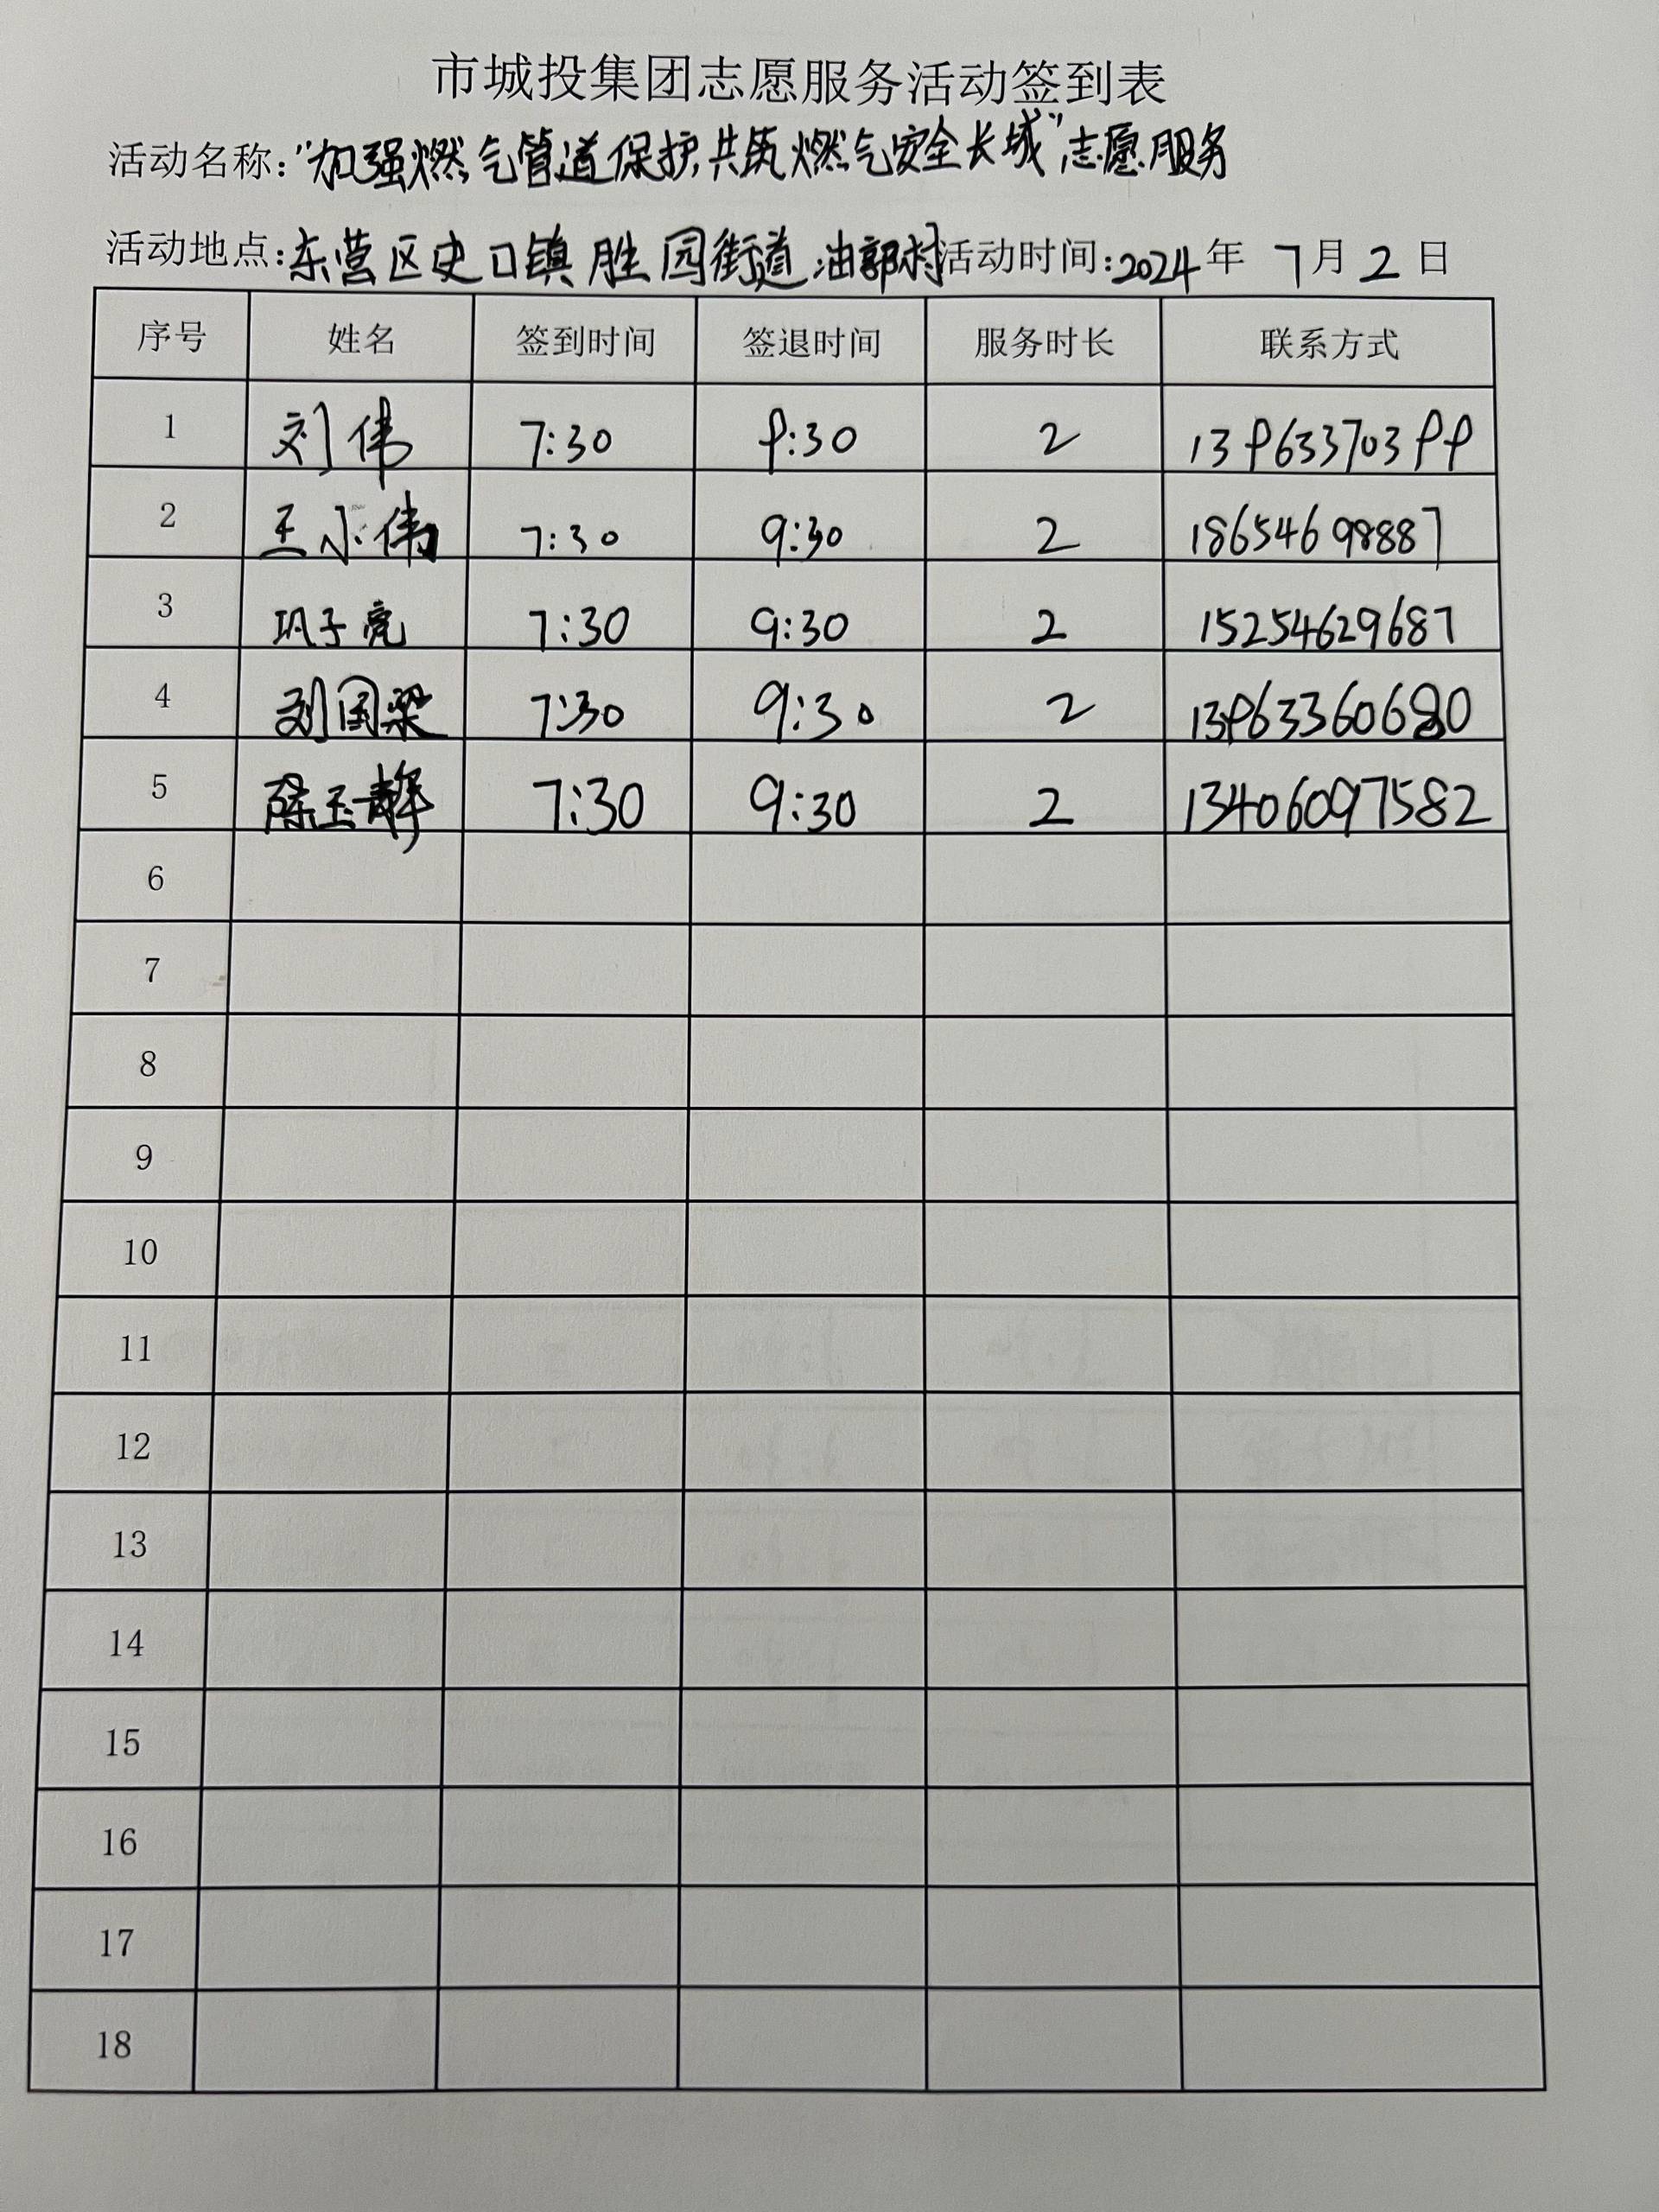 市城投集团志愿服务活动签到表
活动名称:“加强燃气管道保护,共筑燃气安全长城”志愿服务
活动地点:东营区史口镇 胜园街道 油郭村 活动时间:2024年 7月 2 日
序号 姓名 签到时间 签退时间 服务时长 联系方式
1 刘伟 7:30 9:30 2 13963370399
2 王小伟 7:30 9:30 2 18654698887
3 巩子亮 7:30 9:30 2 15254629687
4 刘国梁 7:30 9:30 2 13963360680
5 陈玉静 7:30 9:30 2 13406097582
6
7
8
9
10
11
12
13
14
15
16
17
18